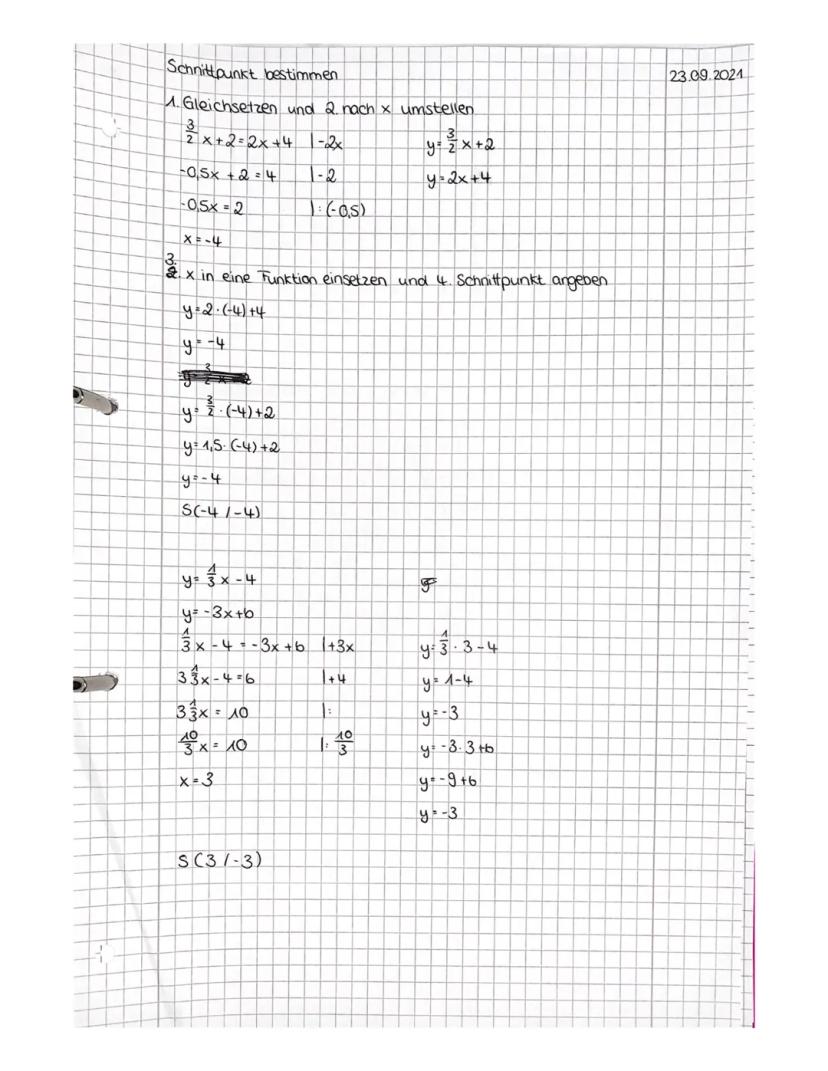 Schnittpunkt bestimmen 23.09.2021
1. Gleichsetzen und 2. nach x umstellen
3/2 x + 2 = 2x + 4 | -2x y = 3/2 x + 2
-0,5x + 2 = 4 | -2 y = 2x + 4
-0,5x = 2 | : (-0,5)
x = -4
3. x in eine Funktion einsetzen und 4. Schnittpunkt angeben
y = 2 · (-4) + 4
y = -4
y = 3/2 · (-4) + 2
y = 1,5 · (-4) + 2
y = -4
S(-4 / -4)
y = 1/3 x - 4
y = -3x + 6
1/3 x - 4 = -3x + 6 | +3x y = 1/3 · 3 - 4
3 1/3 x - 4 = 6 | +4 y = 1 - 4
3 1/3 x = 10 | : y = -3
10/3 x = 10 | : 10/3 y = -3 · 3 + 6
x = 3 y = -9 + 6
y = -3
S (3 / -3)